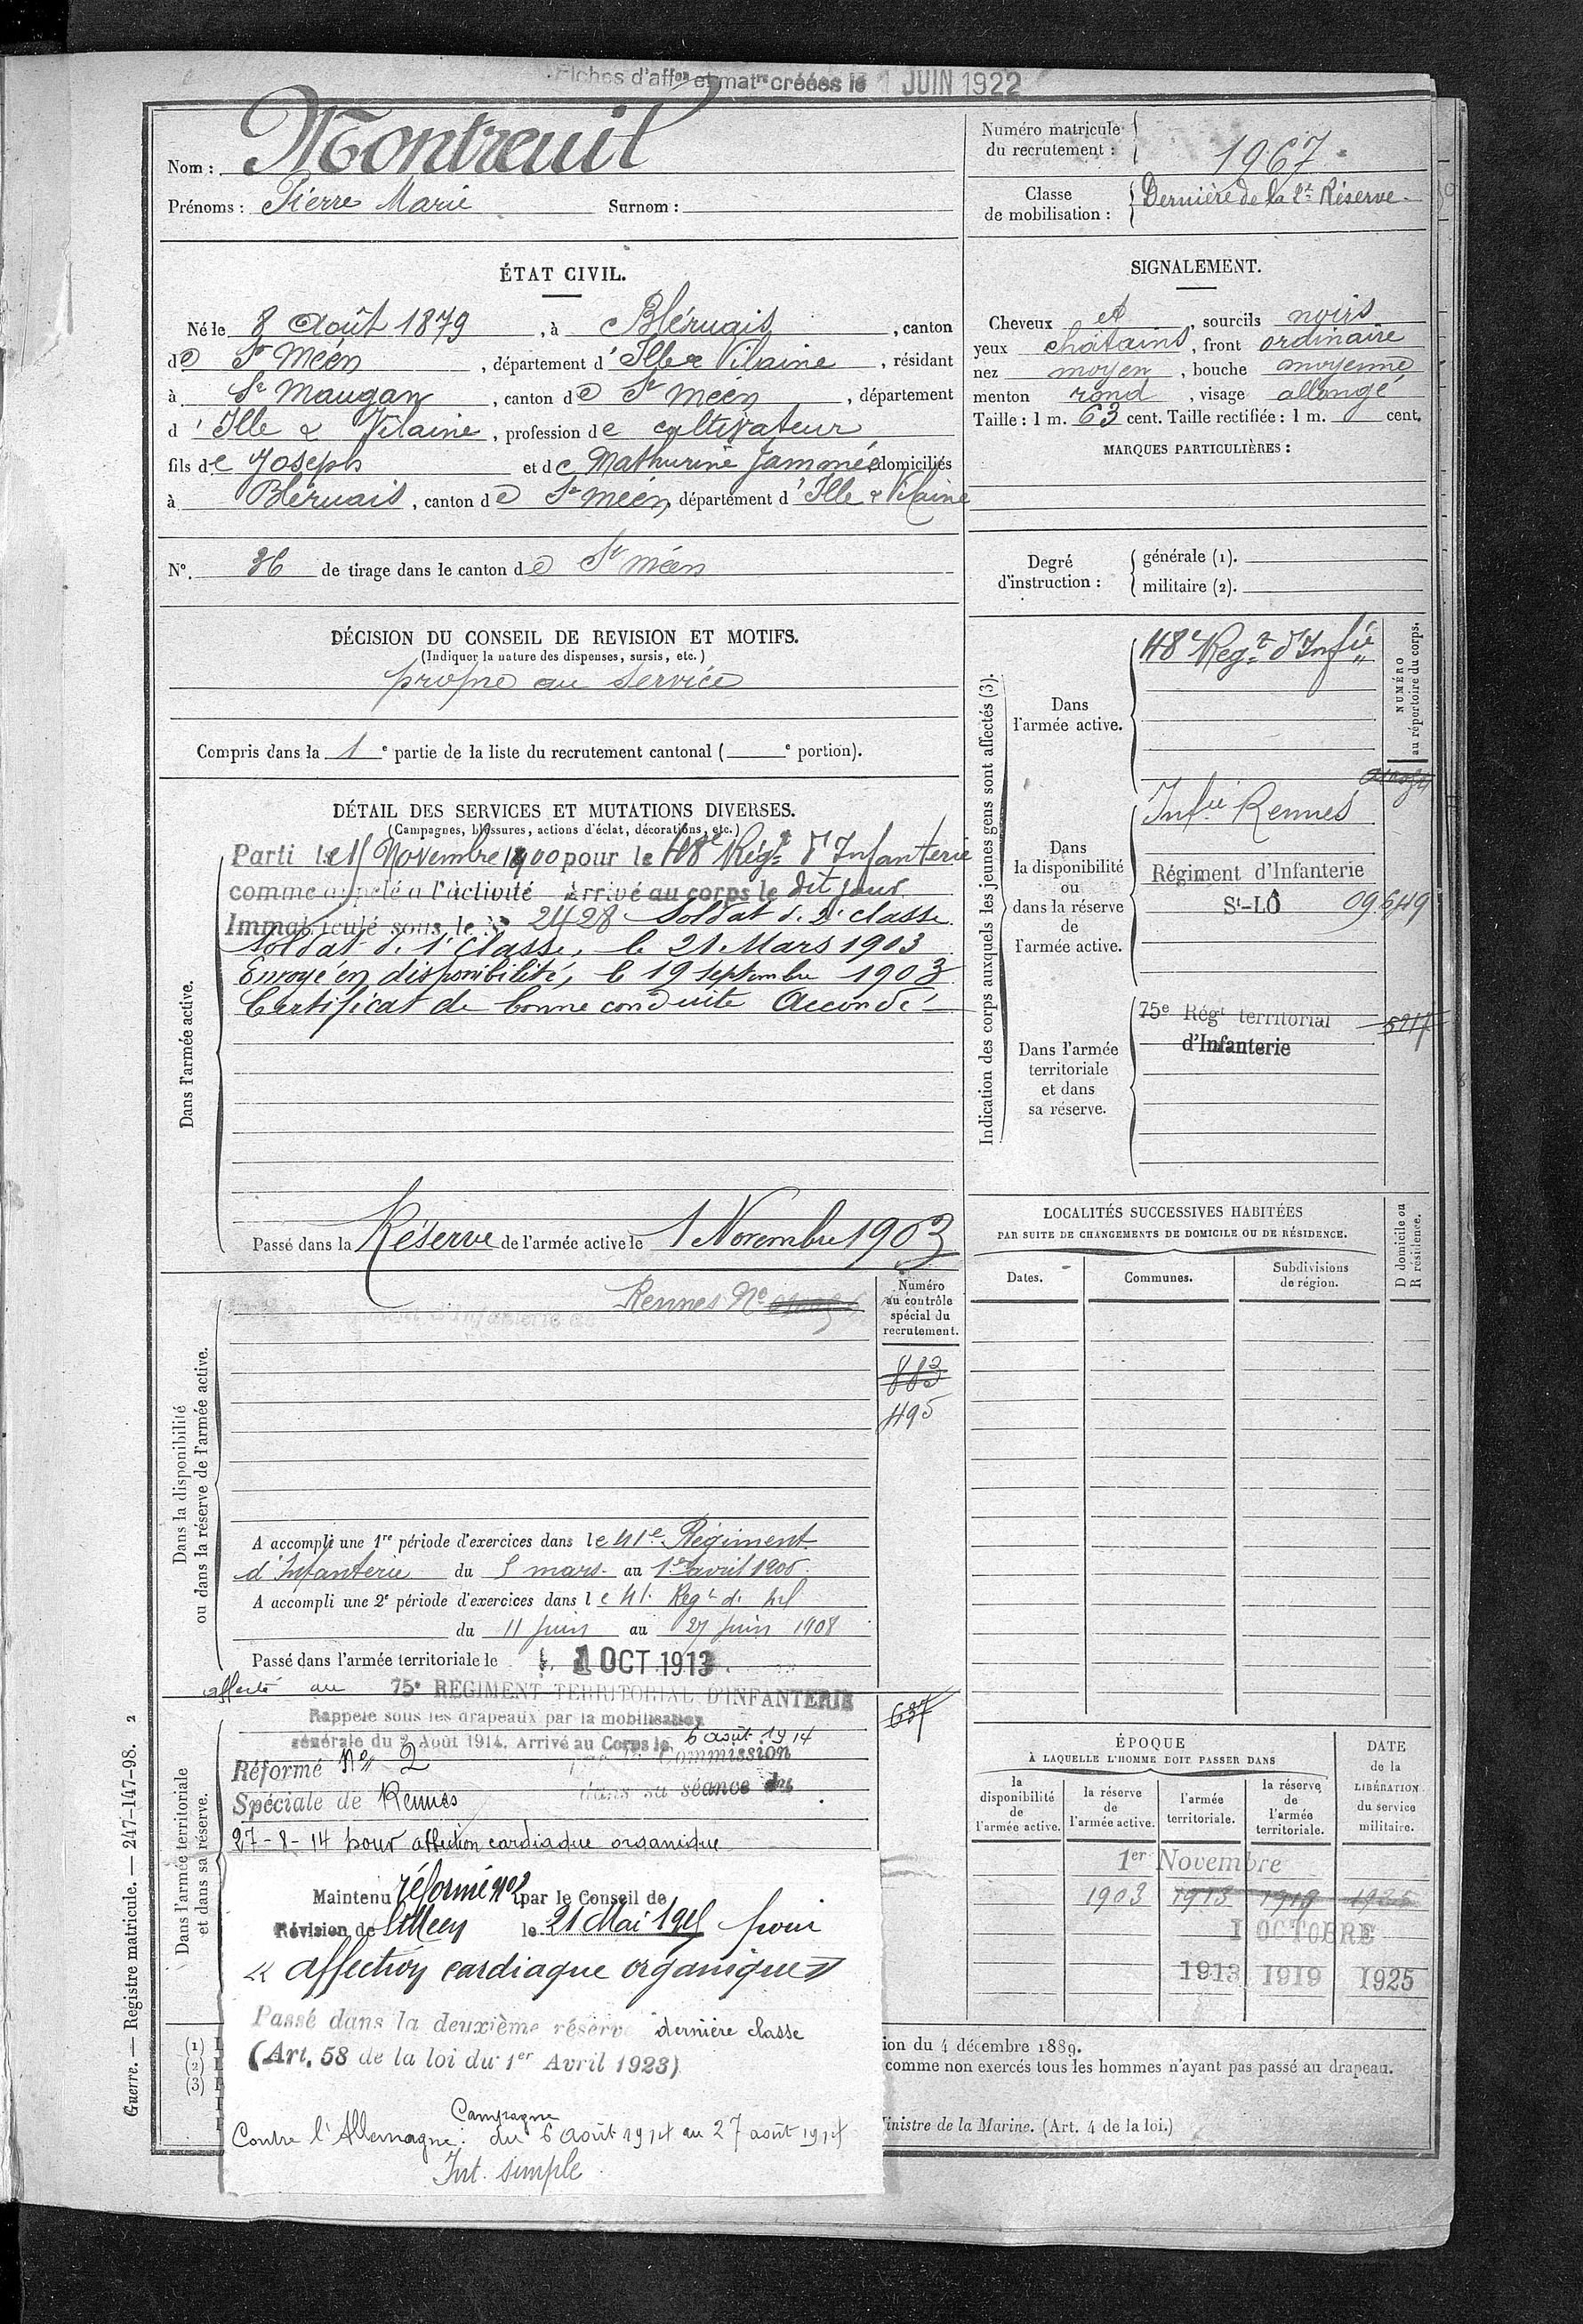 Fiches d'aff^on et mat^re créées le 1 JUIN 1922
Nom : Montreuil
Prénoms : Pierre Marie Surnom :
Numéro matricule du recrutement : 1967
Classe de mobilisation : Dernière de la 2e Réserve
ÉTAT CIVIL.
Né le 8 Août 1879, à Bléruais, canton
de St Méen, département d'Ille & Vilaine, résidant
à St Maugan, canton de St Méen, département
d'Ille & Vilaine, profession de cultivateur
fils de Joseph et de Mathurine Jammée domiciliés
à Bléruais, canton de St Méen, département d'Ille & Vilaine
N° 36 de tirage dans le canton de St Méen
DÉCISION DU CONSEIL DE REVISION ET MOTIFS.
(Indiquer la nature des dispenses, sursis, etc.)
propre au service
Compris dans la 1e partie de la liste du recrutement cantonal ( e portion).
SIGNALEMENT.
Cheveux et, sourcils noirs
yeux châtains, front ordinaire
nez moyen, bouche moyenne
menton rond, visage allongé
Taille : 1 m. 63 cent. Taille rectifiée : 1 m. cent.
MARQUES PARTICULIÈRES :
Degré d'instruction :
générale (1).
militaire (2).
DÉTAIL DES SERVICES ET MUTATIONS DIVERSES.
(Campagnes, blessures, actions d'éclat, décorations, etc.)
Dans l'armée active.
Parti le 15 Novembre 1900 pour le 48e Régt d'Infanterie
comme appelé à l'activité Arrivé au corps le dit jour
Immatriculé sous le N° 2428 Soldat de 2e classe
Soldat de 1e classe, le 21 Mars 1903
Envoyé en disponibilité, le 19 septembre 1903
Certificat de bonne conduite Accordé
Passé dans la Réserve de l'armée active le 1 Novembre 1903
Indication des corps auxquels les jeunes gens sont affectés (3).
NUMÉRO au répertoire du corps.
Dans l'armée active.
48e Regt d'Infie
Dans la disponibilité ou dans la réserve de l'armée active.
Infie Rennes
Régiment d'Infanterie
St-LÔ 09.649
Dans l'armée territoriale et dans sa réserve.
75e Régt territorial 5217
d'Infanterie
Dans la disponibilité ou dans la réserve de l'armée active.
Rennes No
Numéro au contrôle spécial du recrutement.
883
495
A accompli une 1re période d'exercices dans le 41e Régiment
d'Infanterie du 5 mars au 1er avril 1906
A accompli une 2e période d'exercices dans le 41e Regt d'Inf
du 11 juin au 27 juin 1908
Passé dans l'armée territoriale le 1 OCT 1913
affecté au 75e RÉGIMENT TERRITORIAL D'INFANTERIE
637
Dans l'armée territoriale et dans sa réserve.
Rappelé sous les drapeaux par la mobilisation
générale du 2 Août 1914. Arrivé au Corps le 6 août 1914
Réformé No 2 par la Commission
Spéciale de Rennes dans sa séance du
27-8-14 pour affection cardiaque organique
Maintenu réformé no 2 par le Conseil de
Révision de St Méen le 21 Mai 1915 pour
« affection cardiaque organique »
Passé dans la deuxième réserve dernière classe
(Art. 58 de la loi du 1er Avril 1923)
Campagne
Contre l'Allemagne : du 6 Août 1914 au 27 août 1914
Int. simple.
LOCALITÉS SUCCESSIVES HABITÉES
PAR SUITE DE CHANGEMENTS DE DOMICILE OU DE RÉSIDENCE.
D domicile ou R résidence.
Dates. Communes. Subdivisions de région.
ÉPOQUE
À LAQUELLE L'HOMME DOIT PASSER DANS
la disponibilité de l'armée active.
la réserve de l'armée active.
l'armée territoriale.
la réserve de l'armée territoriale.
DATE de la LIBÉRATION du service militaire.
1er Novembre
1903 1913 1919 1925
1 OCTOBRE
1913 1919 1925
(1)
(2)
(3)
ion du 4 décembre 1889.
comme non exercés tous les hommes n'ayant pas passé au drapeau.
inistre de la Marine. (Art. 4 de la loi.)
Guerre. — Registre matricule. — 247-147-98. 2